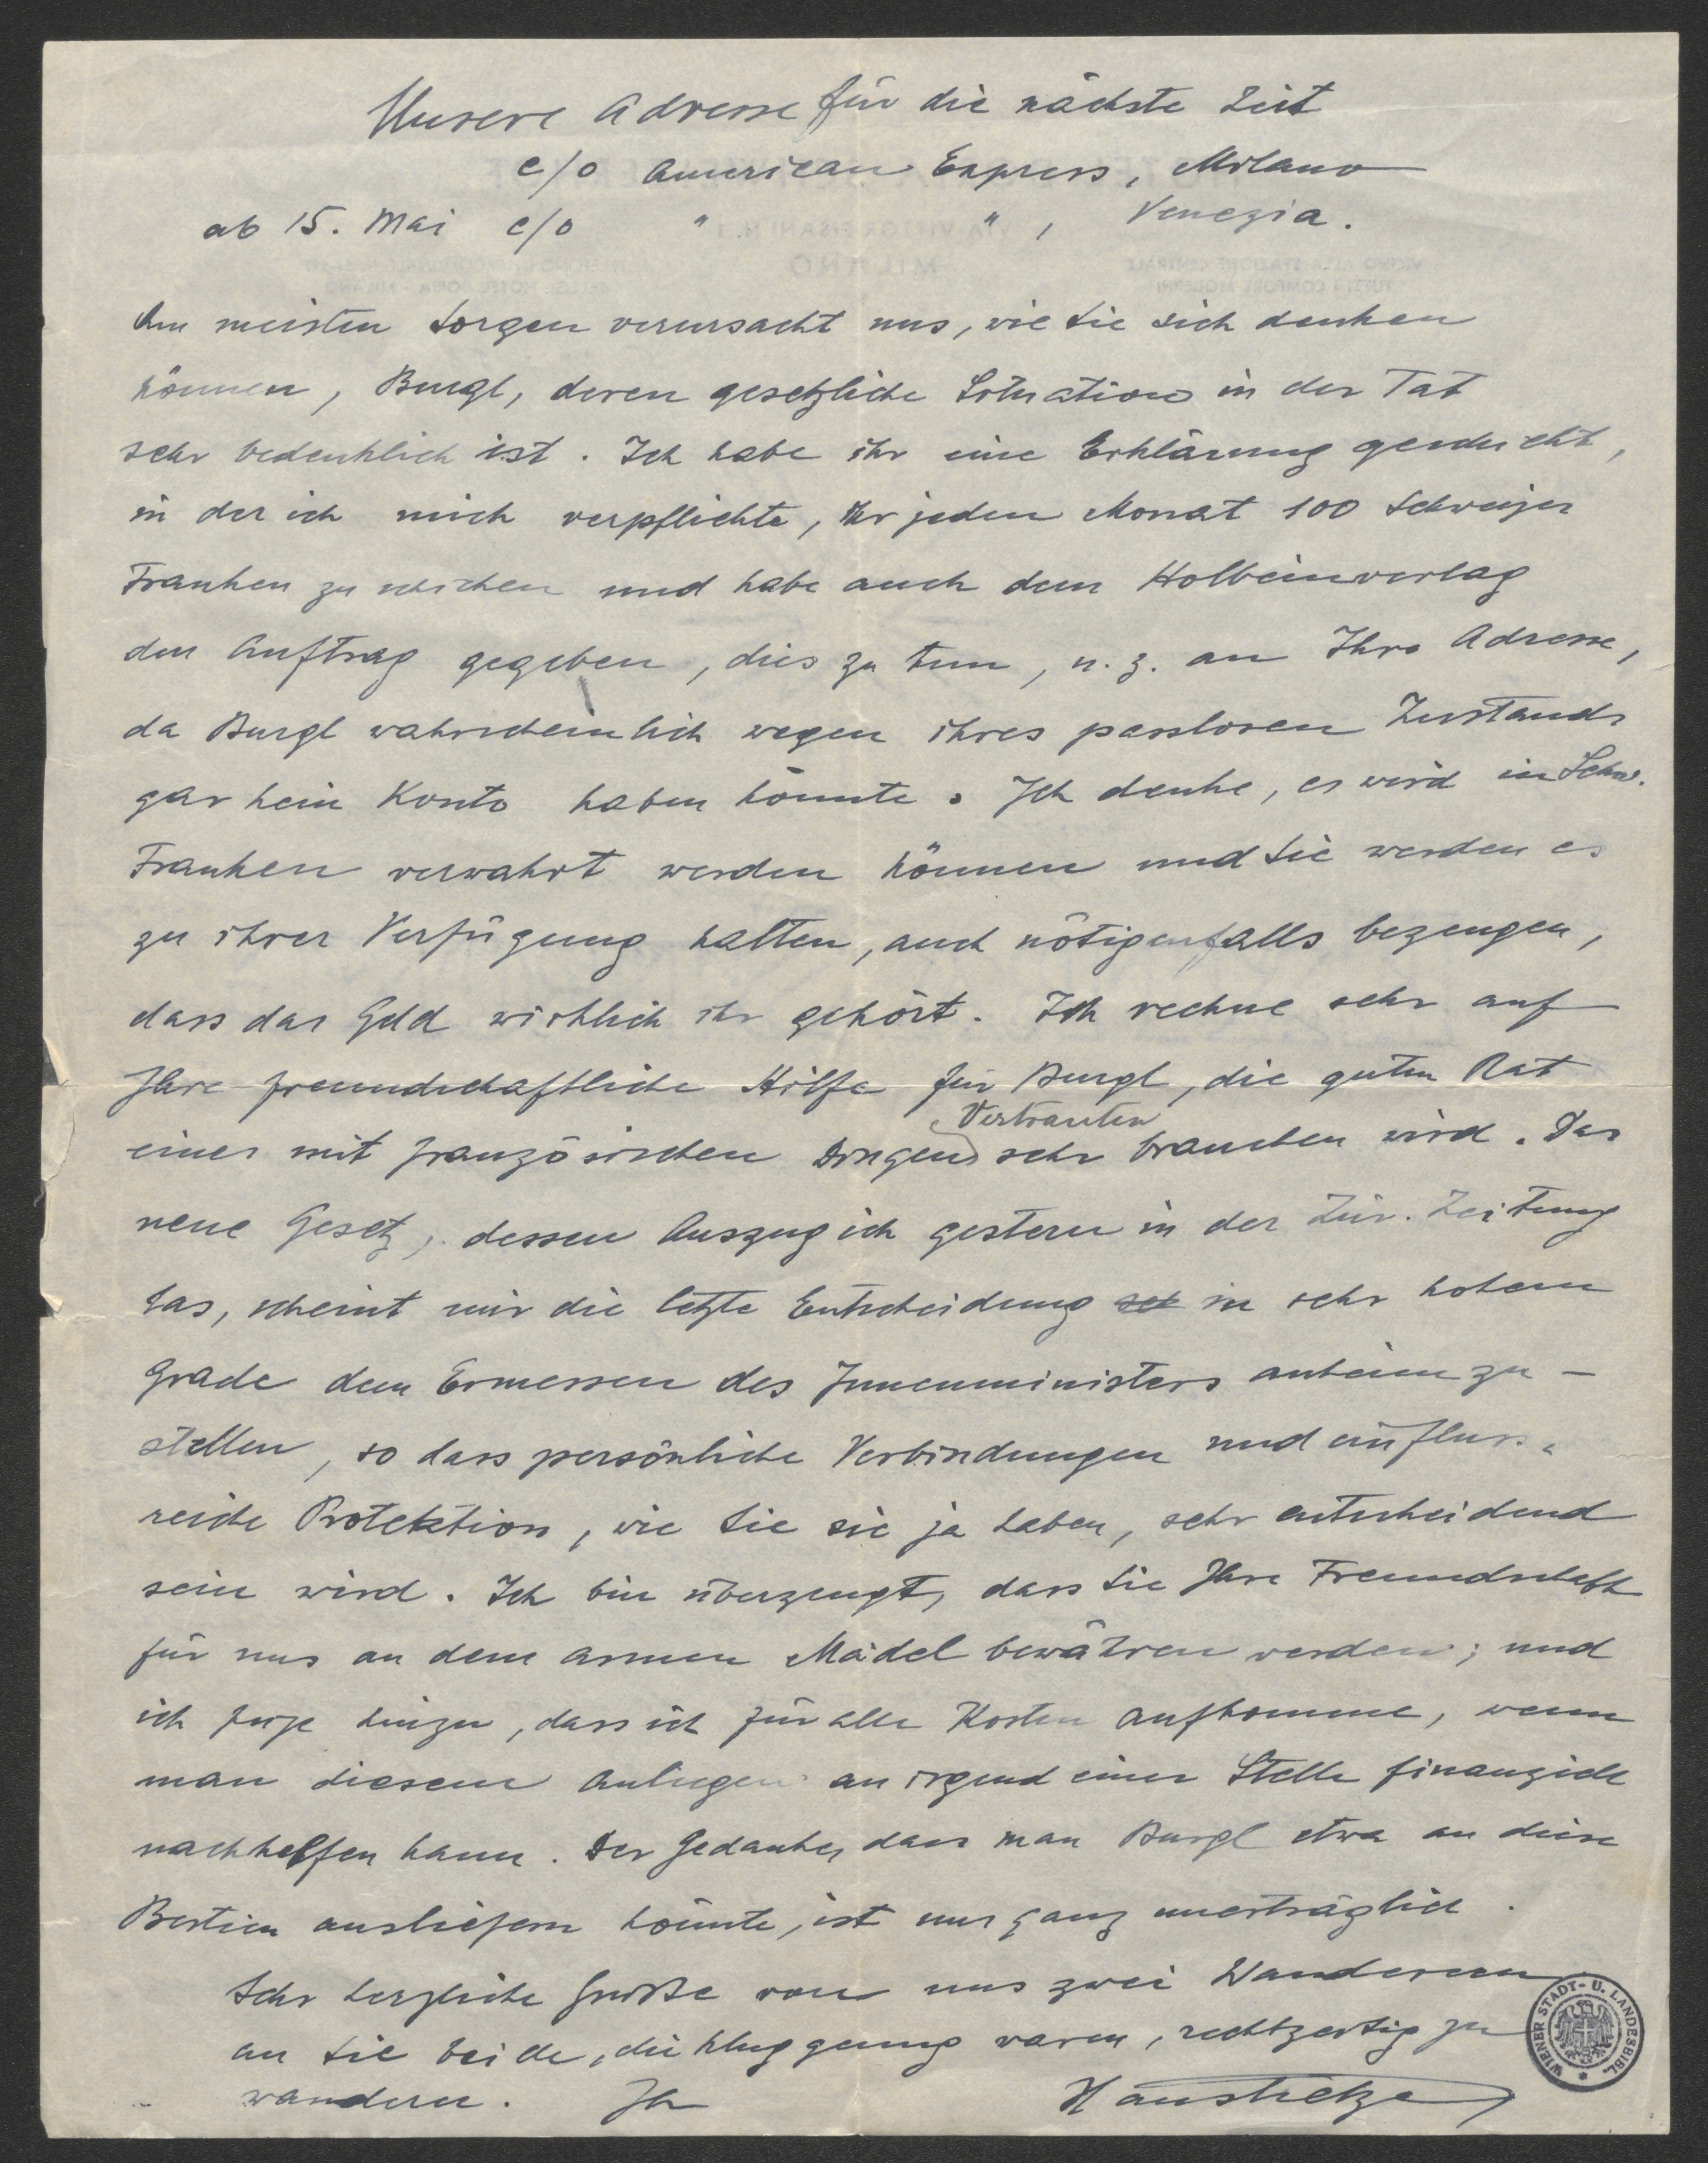 Unsere Adresse für die nächste Zeit
c/o American Express, Milano
ab 15. Mai c/o " " , Venezia.
Am meisten Sorgen verursacht uns, wie Sie sich denken
können, Burgl, deren gesetzliche Situation in der Tat
sehr bedenklich ist. Ich habe ihr eine Erklärung geschickt,
in der ich mich verpflichte, ihr jeden Monat 100 Schweizer
Franken zu schicken und habe auch dem Holbeinverlag
den Auftrag gegeben, dies zu tun, u. z. an Ihre Adresse,
da Burgl wahrscheinlich wegen ihres passlosen Zustands
gar kein Konto haben könnte. Ich denke, es wird in Schw.
Franken verwahrt werden können und Sie werden es
zu ihrer Verfügung halten, auch nötigenfalls bezeugen,
dass das Geld wirklich ihr gehört. Ich rechne sehr auf
Ihre freundschaftliche Hilfe für Burgl, die guten Rat
Vertrauten
eines mit französischen Dingen sehr brauchen wird. Das
neue Gesetz, dessen Auszug ich gestern in der Zür. Zeitung
las, scheint mir die letzte Entscheidung in sehr hohem
Grade dem Ermessen des Innenministers anheim zu-
stellen, so dass persönliche Verbindungen und einfluss-
reiche Protektion, wie Sie sie ja haben, sehr entscheidend
sein wird. Ich bin überzeugt, dass Sie Ihre Freundschaft
für uns an dem armen Mädel bewähren werden; und
ich füge hinzu, dass ich für alle Kosten aufkomme, wenn
man diesem Anliegen an irgend einer Stelle finanziell
nachhelfen kann. Der Gedanke, dass man Burgl etwa an diese
Bestien ausliefern könnte, ist uns ganz unerträglich.
Sehr herzliche Grüsse von uns zwei Wanderern
an Sie beide, die klug genug waren, rechtzeitig zu
wandern. Ihr Hans Tietze
WIENER STADT- U. LANDESBIBL.